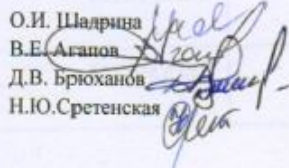 О.И. Шадрина
В.Е. Агапов
Д.В. Брюханов
Н.Ю.Сретенская